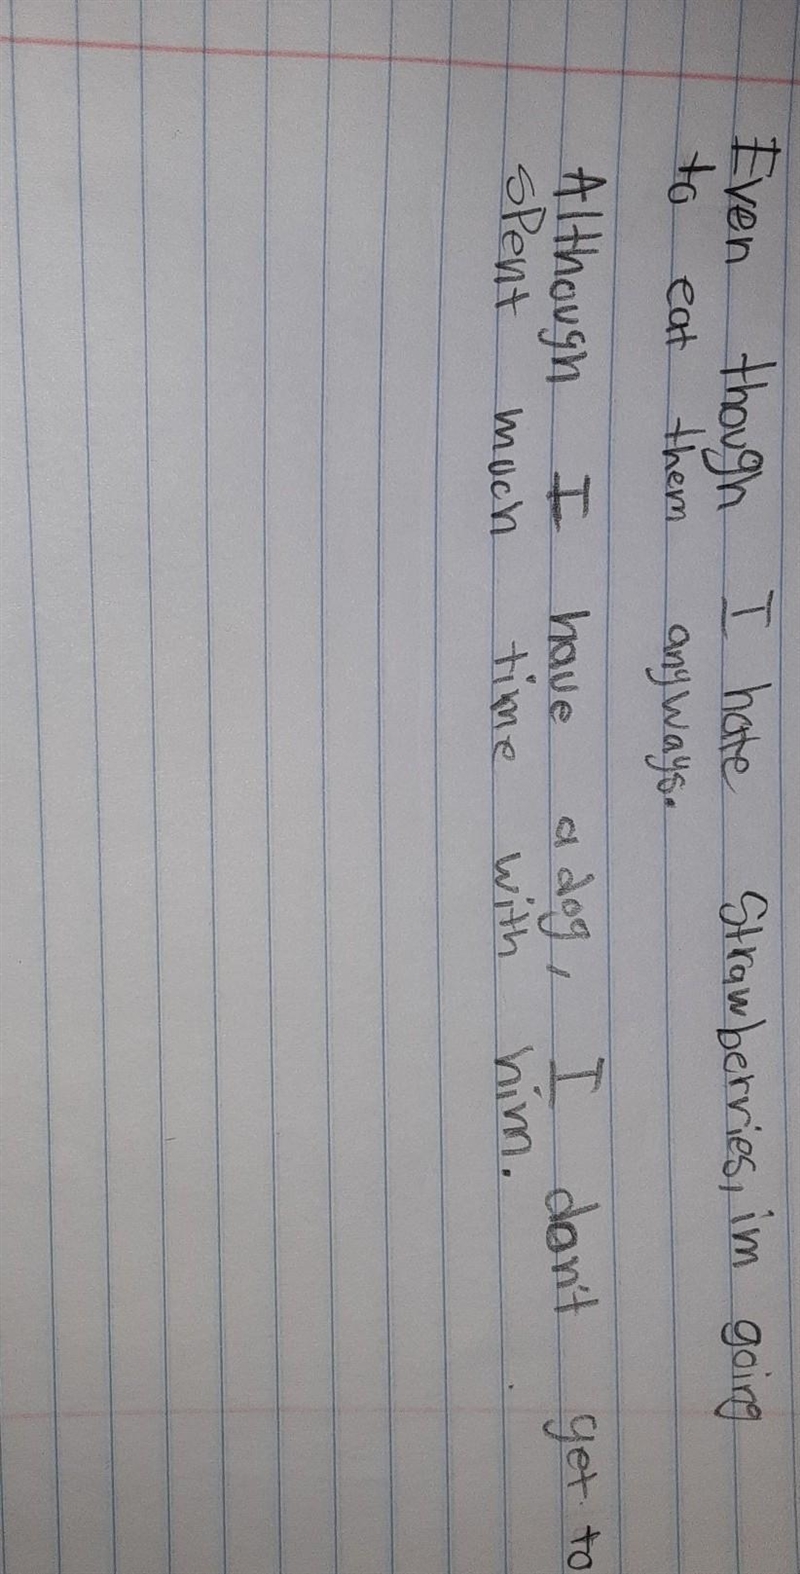 Even though I hate strawberries, im going
to eat them anyways.
Although I have a dog, I don't get to
spent much time with him.